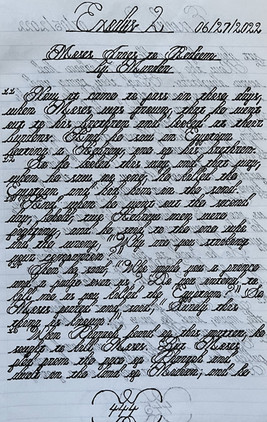 Exodus 2 06/27/2022
Moses Tries to Redeem
by Murder
11 Now it came to pass in those days,
when Moses was grown, that he went
out to his brethren and looked at their
burdens. And he saw an Egyptian
beating a Hebrew, one of his brethren.
12 So he looked this way and that way,
when he saw no one, he killed the
Egyptian and hid him in the sand.
13 And when he went out the second
day, behold, two Hebrew men were
fighting, and he said to the one who
did the wrong, "Why are you striking
your companion?"
14 Then he said, "Who made you a prince
and a judge over us? Do you intend to
kill me as you killed the Egyptian?" So
Moses feared and said, "Surely this
thing is known!"
15 When Pharaoh heard of this matter, he
sought to kill Moses. But Moses
fled from the face of Pharaoh and
dwelt in the land of Midian; and he
444